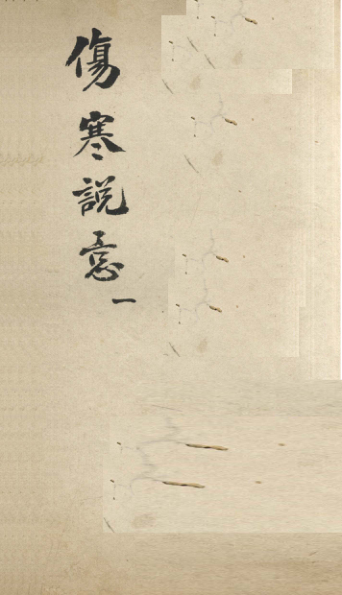 傷寒說意一